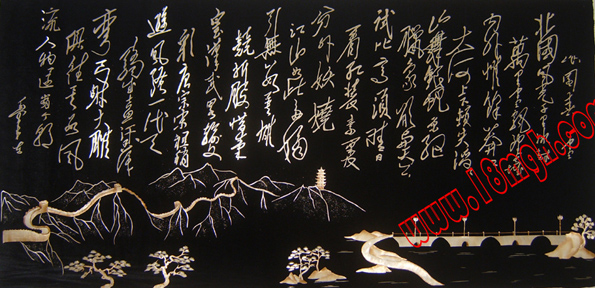 沁园春 雪
北国风光千里冰封
万里雪飘望长城
内外惟余莽莽
大河上下顿失滔滔
山舞银蛇原驰
蜡象欲与天公
试比高须晴日
看红装素裹
分外妖娆
江山如此多娇
引无数英雄
竞折腰惜秦
皇汉武略输文
采唐宗宋祖稍
逊风骚一代天
骄成吉思汗
弯弓射大雕
俱往矣数风
流人物还看今朝